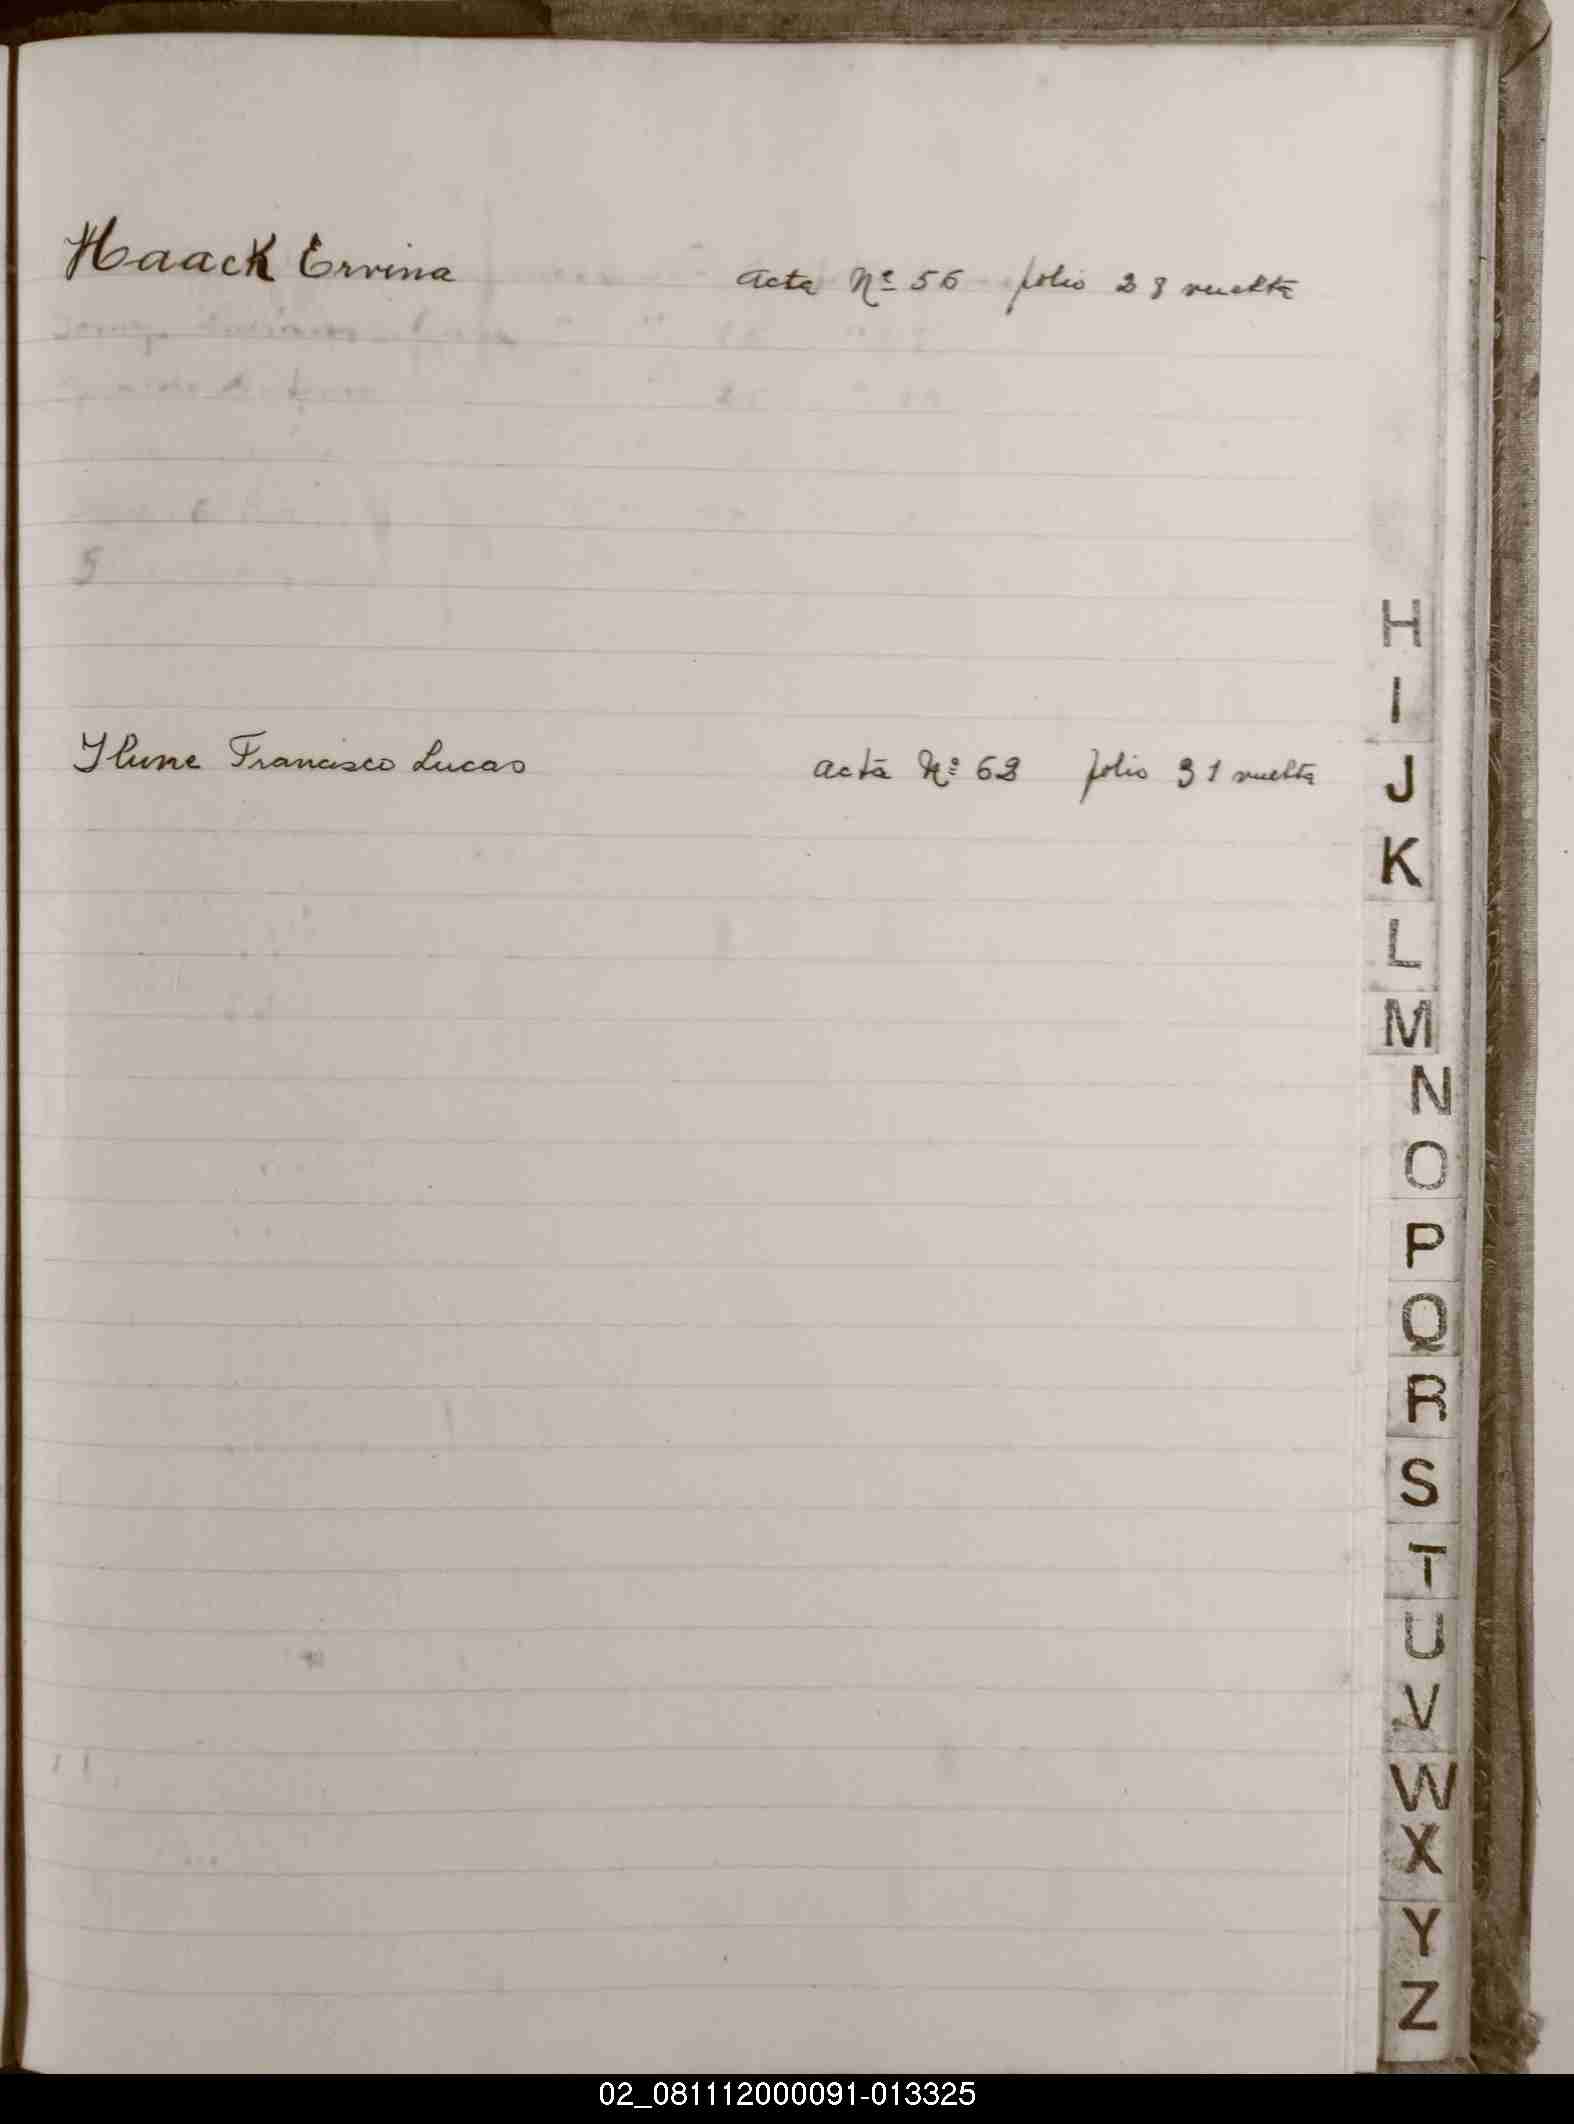 Haack Ervina acta Nº 56 folio 28 vuelta
Ilune Francisco Lucas acta Nº 62 folio 31 vuelta
H
I
J
K
L
M
N
O
P
Q
R
S
T
U
V
W
X
Y
Z
02_081112000091-013325